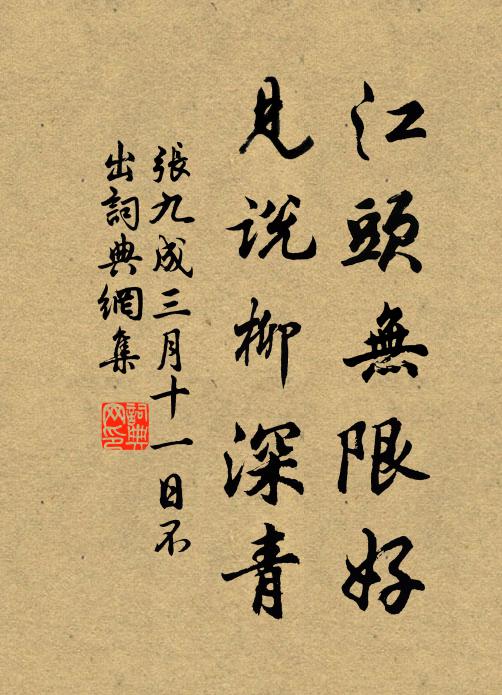 江頭無限好
見説柳深青
張九成三月十一日不
出詞典網集
詞典
网印